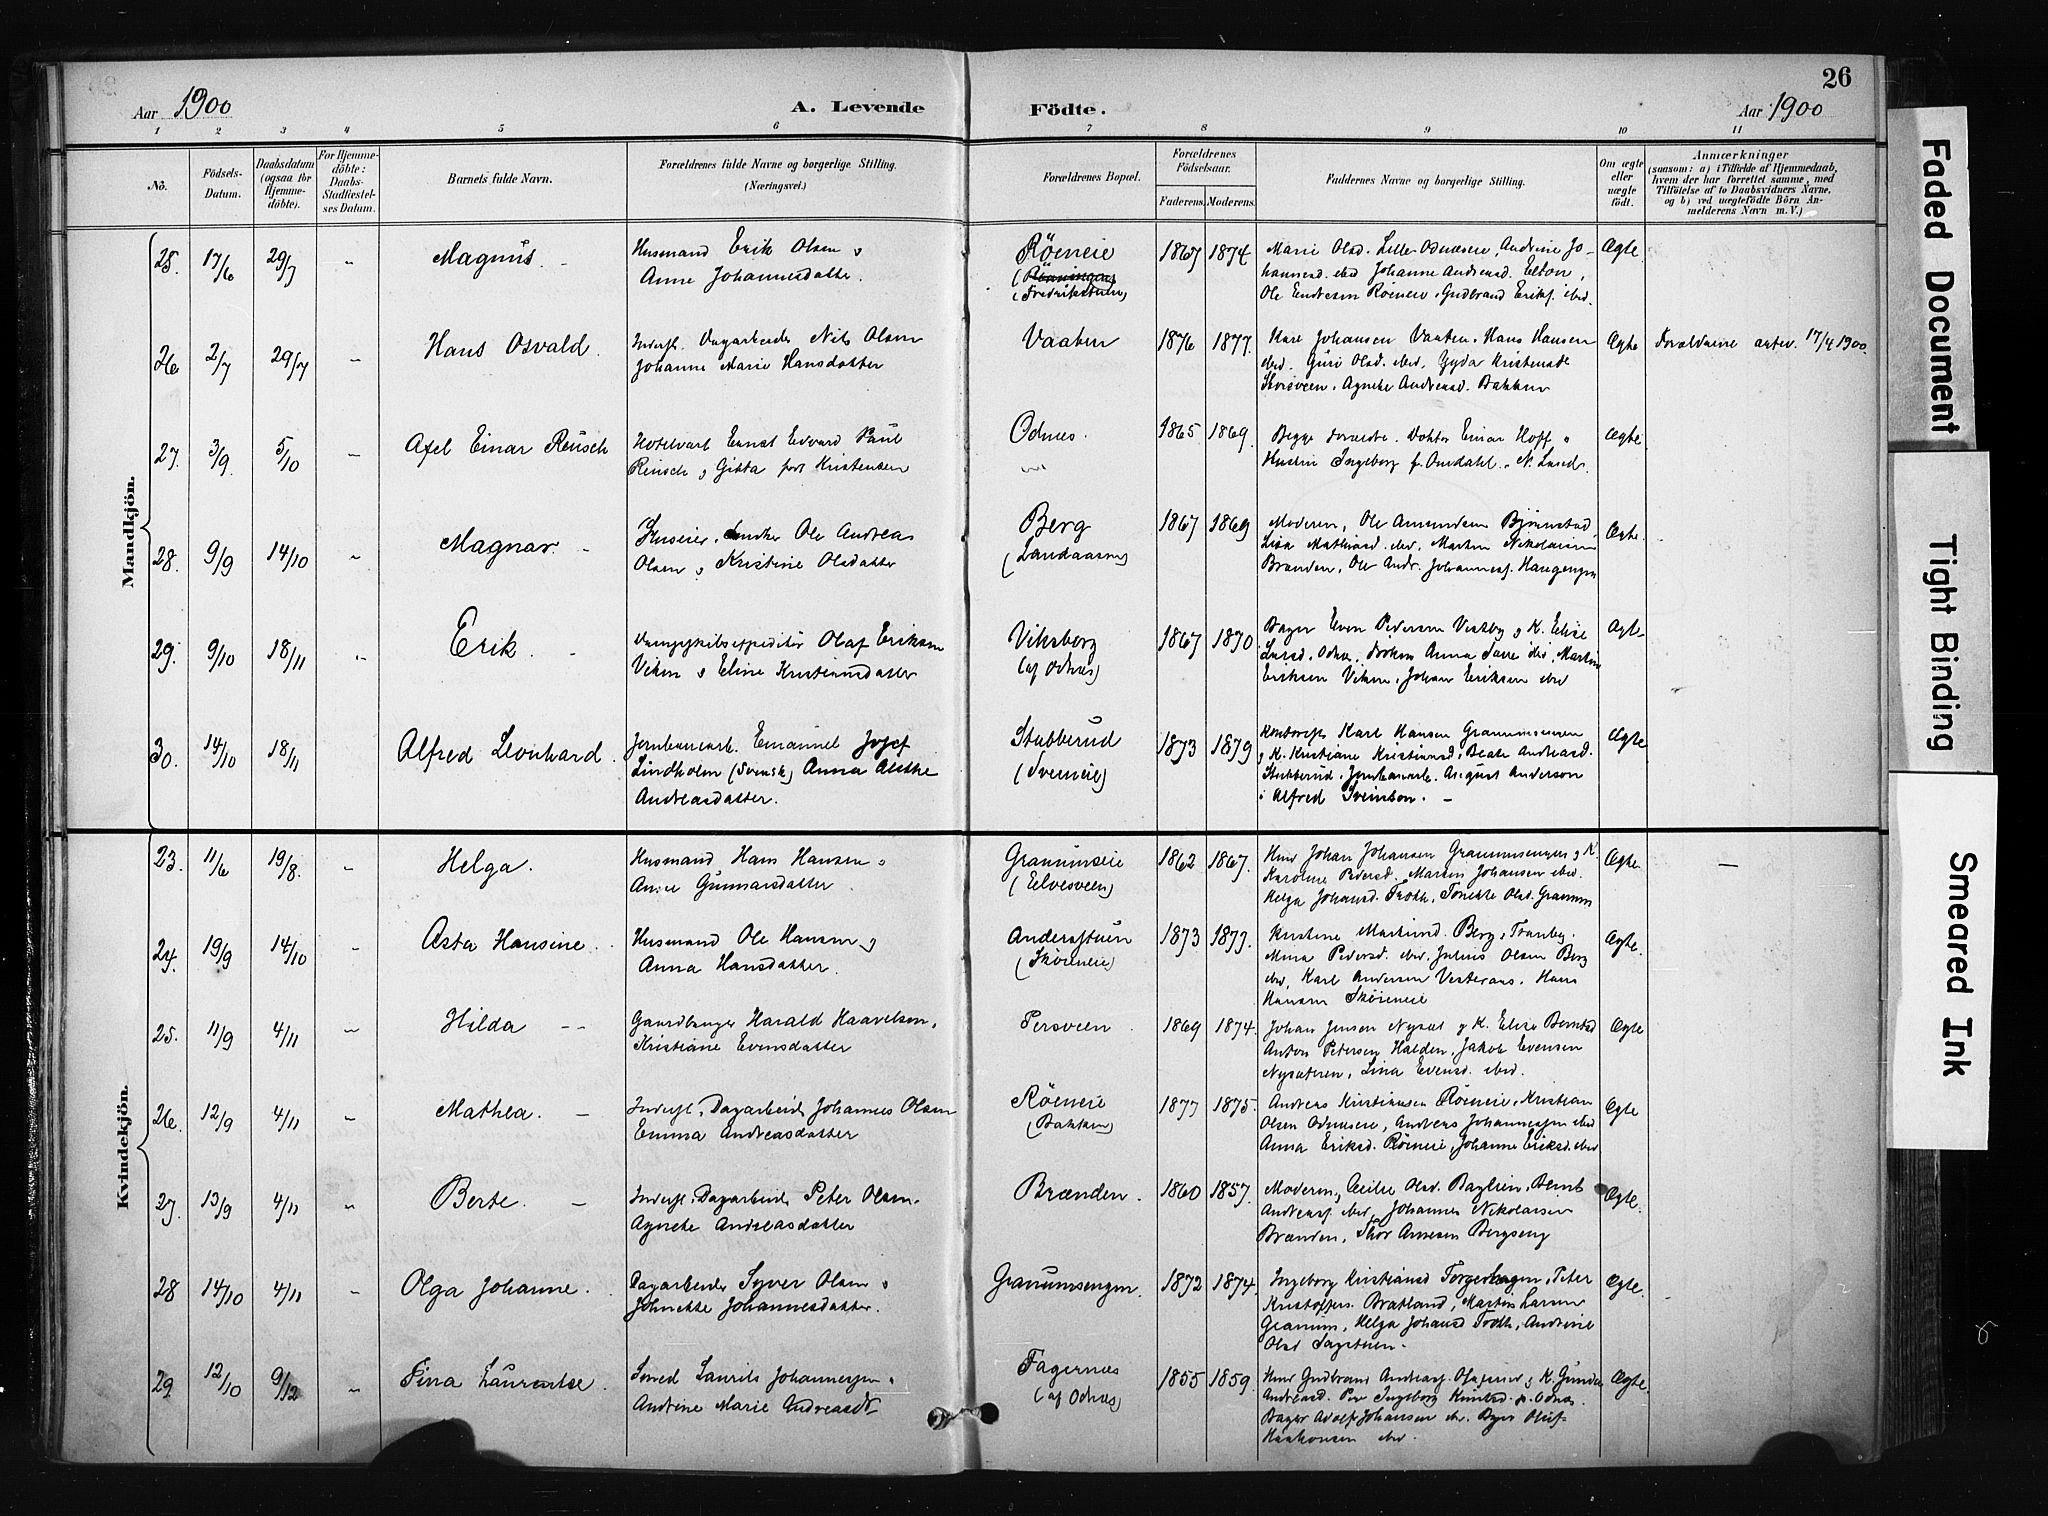 26
Aar 1900
A. Levende
Födte.
Aar 1900
1 2 3 4 5 6 7 8 9 10 11
No.
Födsels-
Datum.
Daabsdatum
(ogsaa for
Hjemme-
döbte).
For Hjemme-
döbte:
Daabs-
Stadfæstel-
ses Datum.
Barnets fulde Navn.
Forældrenes fulde Navne og borgerlige Stilling.
(Næringsvei.)
Forældrenes Bopæl.
Forældrenes
Födselsaar.
Faderens. Moderens.
Faddernes Navne og borgerlige Stilling.
Om ægte
eller
uægte
födt.
Anmærkninger
(saasom: a) i Tilfælde af Hjemmedaab,
hvem der har forrettet samme, med
Tilföielse af to Daabsvidners Navne,
og b) ved uægtefödte Börn An-
melderens Navn m.V.)
Mandkjön.
25. 17/6 29/7 " Magnus.
Husmand Erik Olsen &
Anne Johannesdatter.
Röeneie
(Fredrikstuen)
1867 1874
Marie Olsd. Lille-Odnæseie, Andrine Jo-
hannesd. ibid Johanne Andreasd. Elton,
Ole Endresen Röeneie, Gudbrand Eriks. ibid.
Ægte
26 2/7 29/7 " Hans Osvald.
Inders. Dagarbeider Nils Olsen
Johanne Marie Hansdatter
Vaaten
1876 1877.
Johansen Vaaten, Hans Hansen
ibid. Guri Olsd. ibid, Gyda Kristensd
Storsveen, Agnethe Andreasd. Bakken
Ægte
Forældrene 17/4 1900.
27. 3/9. 5/10 " Axel Einar Reusch
Hotelvært Ernst Edvard Paul
Reusch & Gitta født Kristensen
Odnæs.
1865 1869.
Begge forældre. Doktor Einar Hoff &
Hustru Ingeborg f. Omdahl. N. Lund
Ægte
28. 9/9 14/10 " Magnar.
Ole Andreas
Olsen & Kristine Olsdatter
Berg
(Landaasen)
1867 1869
Moderen, Ole Amundsen Björnstad
Lisa Mathiasd. ibid, Martin Nikolaisen
Brænden, Ole Andr. Johanness. Hagengen
Ægte.
29. 9/10 18/11 " Erik
Dampskibsexpeditör Olaf Eriksen
Viken & Eline Kristiansdatter
Viksborg
(af Odnæs)
1867 1870
Bager Even Pedersen Vestby & K. Elise
Larsd. Odnæs. Anna ibid, Martin
Eriksen Viken, Johan Eriksen ibid
Ægte
30. 14/10 18/11 Alfred Leonhard.
Jernbanearb. Emanuel Josef
Lindholm (Svensk) Anna Alethe
Andreasdatter.
Stubberud
(Sveneie)
1873 1879
Karl Hansen Granumsengen
& K. Kristiane Kristiansd, Beate Andreasd.
Stubberud, Jernbanearb. August Anderson
& Alfred Svenson. –
Ægte
Kvindekjön.
23. 11/6 19/8. " Helga.
Husmand Hans Hansen &
Anne Gunnarsdatter
Granumseie
(Elvesveen)
1862 1867.
Johan Johansen Granumsengen & K.
Karoline Pedersd. Martin Johansen ibid.
Helga Johansd. Toth, Tonette Olsd. Granum
Ægte. –
24. 19/9 14/10 " Asta Hansine.
Husmand Ole Hansen &
Anna Hansdatter.
Anderstuen
(Sköieneie)
1873 1877.
Kristine Martinsd. Berg, Tranby.
Mina Pedersd. ibid, Julius Olsen Berg
ibid, Karl Andersen Vesteraas. Hans
Hansen Sköieneie
Ægte.
25. 11/9 4/11 " Hilda
Gaardbruger Harald Haavelsen,
Kristiane Evensdatter
Persveen.
1869 1874.
Johan Jensen Nysæt & K. Elise Berntsd
Anton Petersen Halden, Jakob Evensen
Nysæteren, Lina Evensd. ibid.
Ægte
26. 12/9 4/11 " Mathea.
Inders. Dagarbeider Johannes Olsen
Emma Andreasdatter
Röeneie
(Bakken)
1877 1875.
Andreas Kristiansen Röeneie, Kristian
Olsen Odnæseie, Andreas Johannessen ibid
Anna Eriksd. Röeneie, Johanne Eriksd. ibid
Ægte
27. 13/9 4/11 " Berte.
Inders. Dagarbeider Peter Olsen.
Agnethe Andreasdatter
Brænden.
1860 1857.
Moderen, Cecilie Olsd. Baglien, Bernt
Andreass. ibid, Johannes Nikolaisen
Brænden, Thor Arnesen Bergseng
Ægte.
28 14/10 4/11 " Olga Johanne.
Dagarbeider Syver Olsen &
Johnette Johannesdatter.
Granumsengen.
1872 1874.
Ingeborg Kristiansd Torgerhagen, Peter
Kristoffers. Bratland, Martin Larsen
Granum, Helga Johansd Toth, Andrine
Olsd Sagstuen.
Ægte.
29 12/10 9/12 " Sina Laurentse.
Smed Laurits Johannessen &
Andrine Marie Andreasdt
Fagernæs
(af Odnæs)
1855 1859.
Gudbrand Andreass. & K. Gunda
Andreasd. Ingeborg Odnæs.
Bager Adolf Johansen ibid. Oluf
Haakonsen ibid.
Ægte.
Faded Document
Tight Binding
Smeared Ink